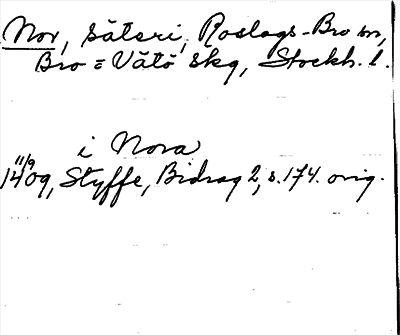 Nor, säteri, Roslags-Bro sn,
Bro = Vätö skg, Stockh. l.
i Nora
11/9
1409, Styffe, Bidrag 2, s. 174. orig.